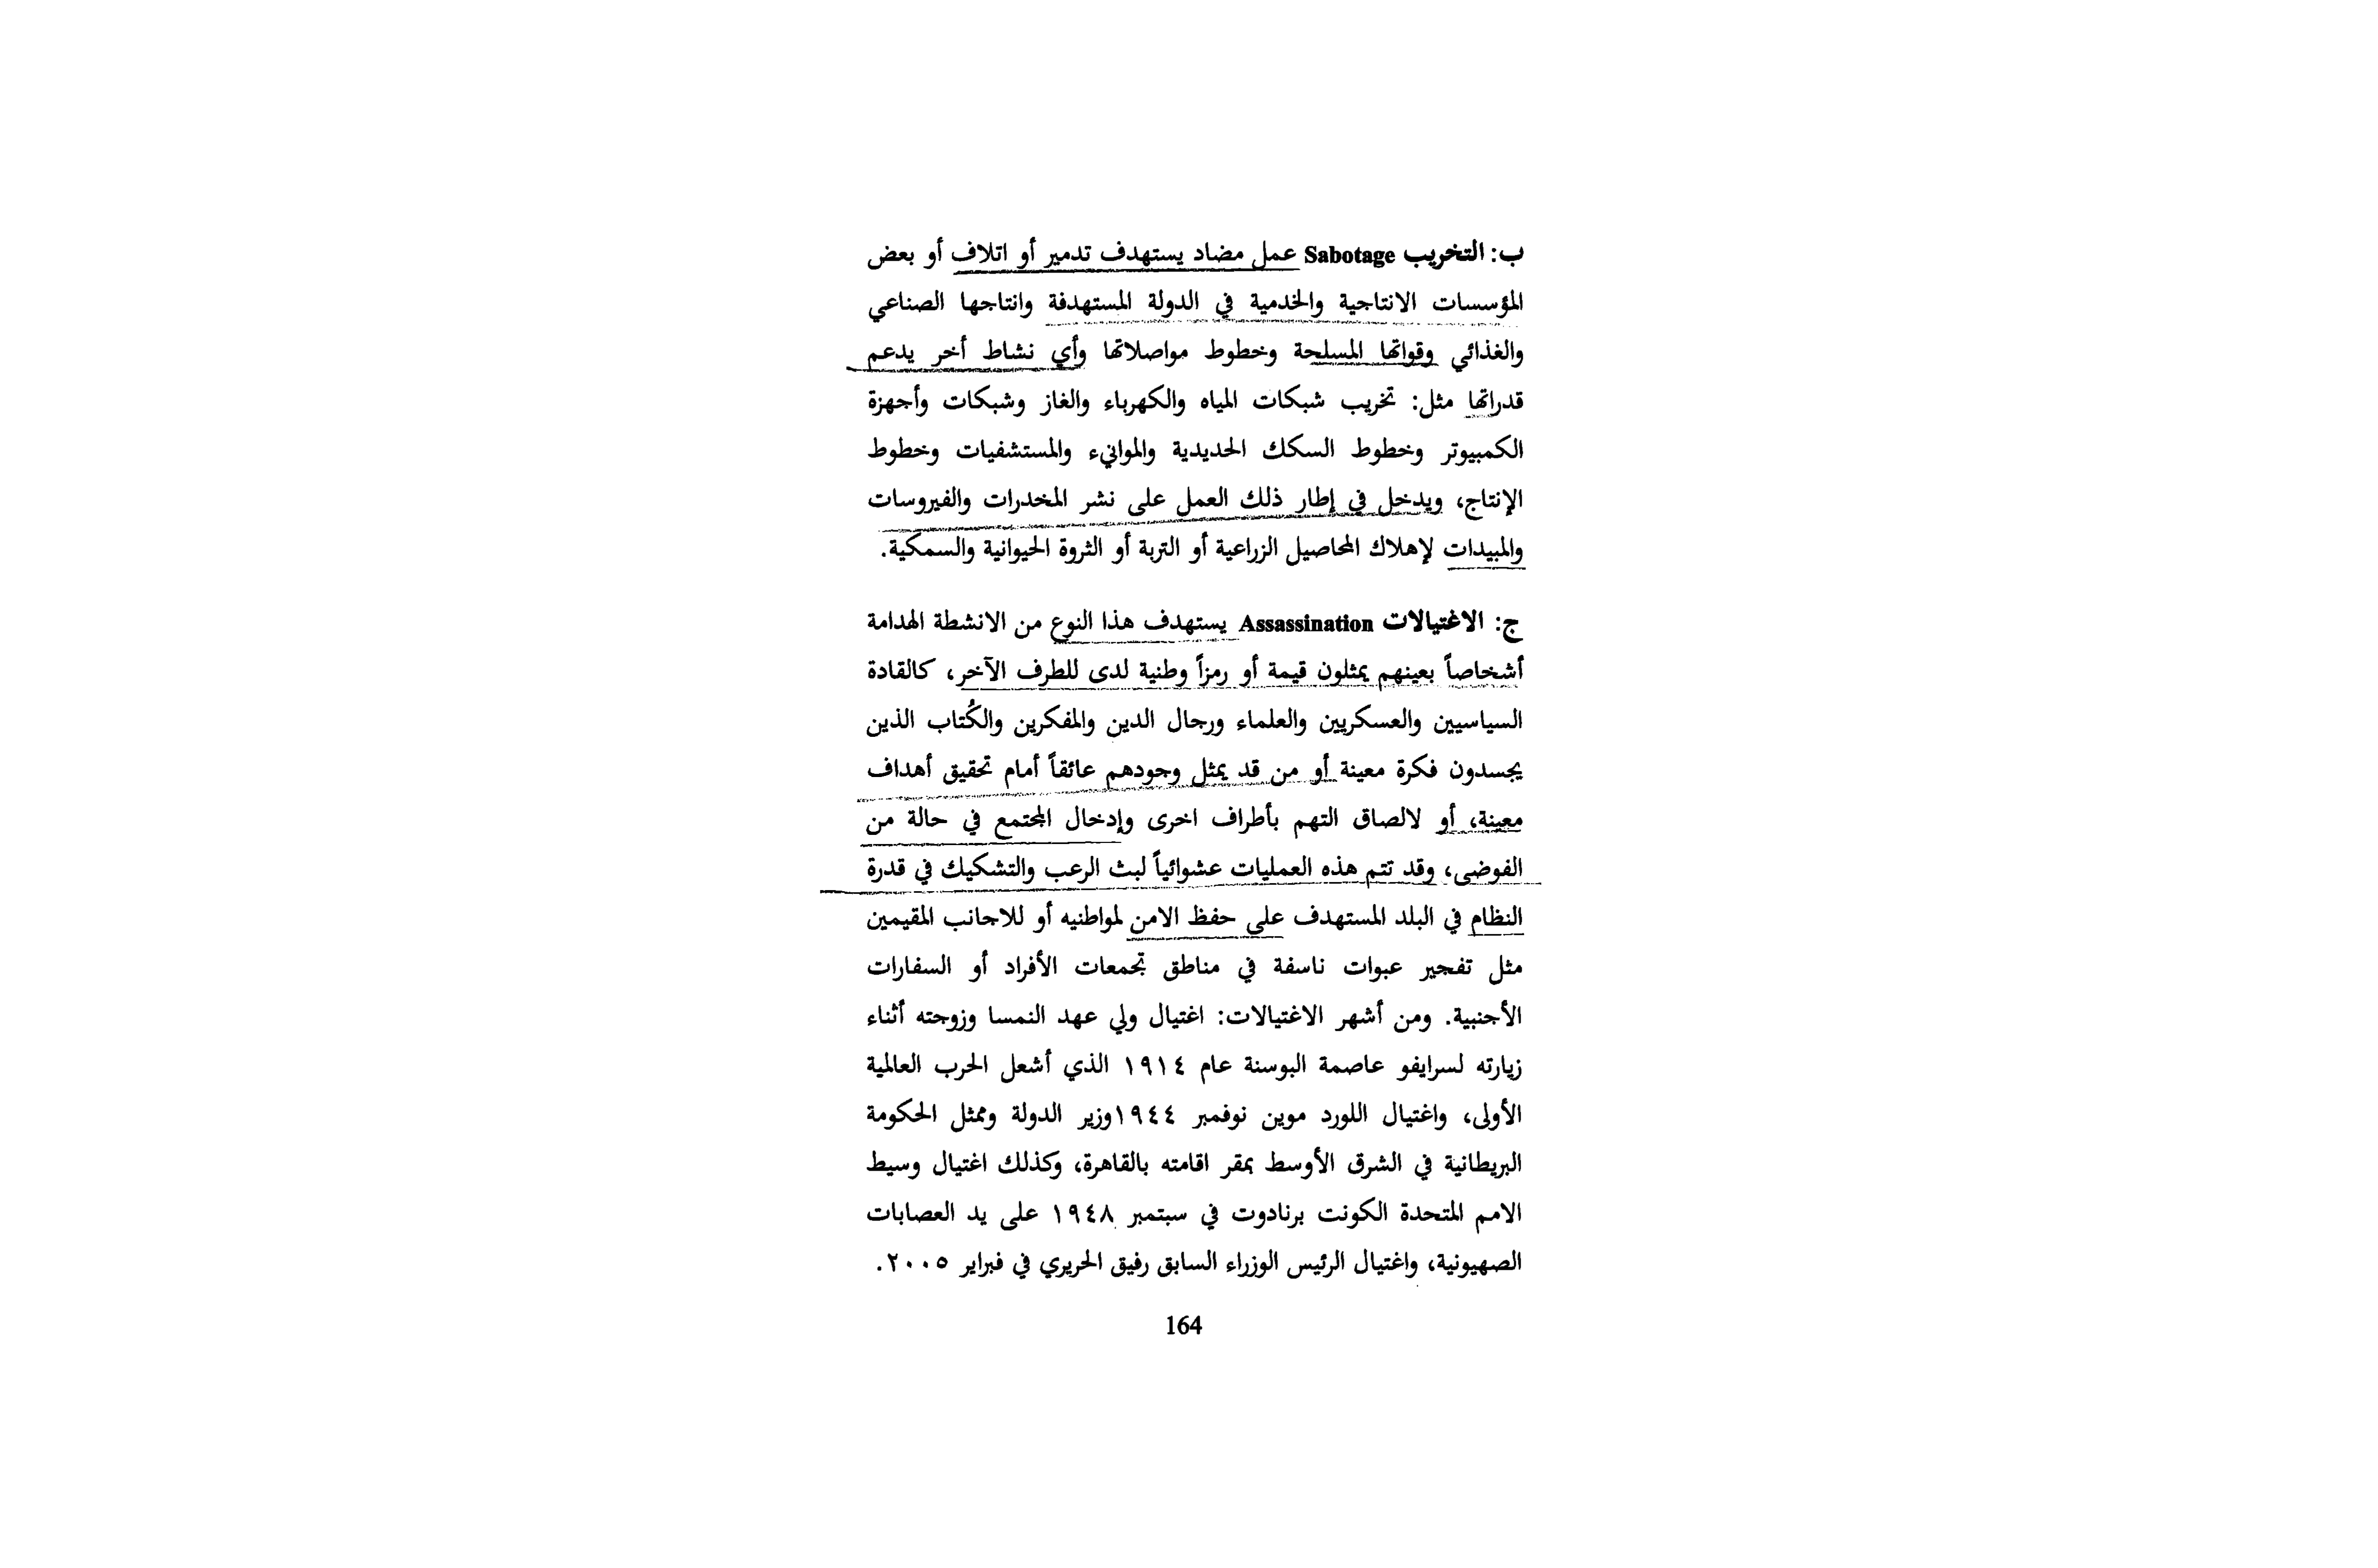 ب: التخريب Sabotage عمل مضاد يستهدف تدمير أو اتلاف أو بعض
المؤسسات الانتاجية والخدمية في الدولة المستهدفة وانتاجها الصناعي
والغذائي وقواتها المسلحة وخطوط مواصلاتها وأي نشاط أخر يدعم
قدراتها مثل: تخريب شبكات المياه والكهرباء والغاز وشبكات وأجهزة
الكمبيوتر وخطوط السكك الحديدية والموانيء والمستشفيات وخطوط
الإنتاج، ويدخل في إطار ذلك العمل على نشر المخدرات والفيروسات
والمبيدات لإهلاك المحاصيل الزراعية أو التربة أو الثروة الحيوانية والسمكية.
ج: الاغتيالات Assassination يستهدف هذا النوع من الانشطة الهدامة
أشخاصاً بعينهم يمثلون قيمة أو رمزاً وطنية لدى للطرف الآخر، كالقادة
السياسيين والعسكريين والعلماء ورجال الدين والمفكرين والكُتاب الذين
يجسدون فكرة معينة أو من قد يمثل وجودهم عائقاً أمام تحقيق أهداف
معينة، أو لالصاق التهم بأطراف اخرى وإدخال المجتمع في حالة من
الفوضى، وقد تتم هذه العمليات عشوائياً لبث الرعب والتشكيك في قدرة
النظام في البلد المستهدف على حفظ الامن لمواطنيه أو للاجانب المقيمين
مثل تفجير عبوات ناسفة في مناطق تجمعات الأفراد أو السفارات
الأجنبية. ومن أشهر الاغتيالات: اغتيال ولي عهد النمسا وزوجته أثناء
زيارته لسرايفو عاصمة البوسنة عام ١٩١٤ الذي أشعل الحرب العالمية
الأولى، واغتيال اللورد موين نوفمبر ١٩٤٤وزير الدولة وممثل الحكومة
البريطانية في الشرق الأوسط بمقر اقامته بالقاهرة، وكذلك اغتيال وسيط
الامم المتحدة الكونت برنادوت في سبتمبر ١٩٤٨ على يد العصابات
الصهيونية، واغتيال الرئيس الوزراء السابق رفيق الحريري في فبراير ٢٠٠٥.
164